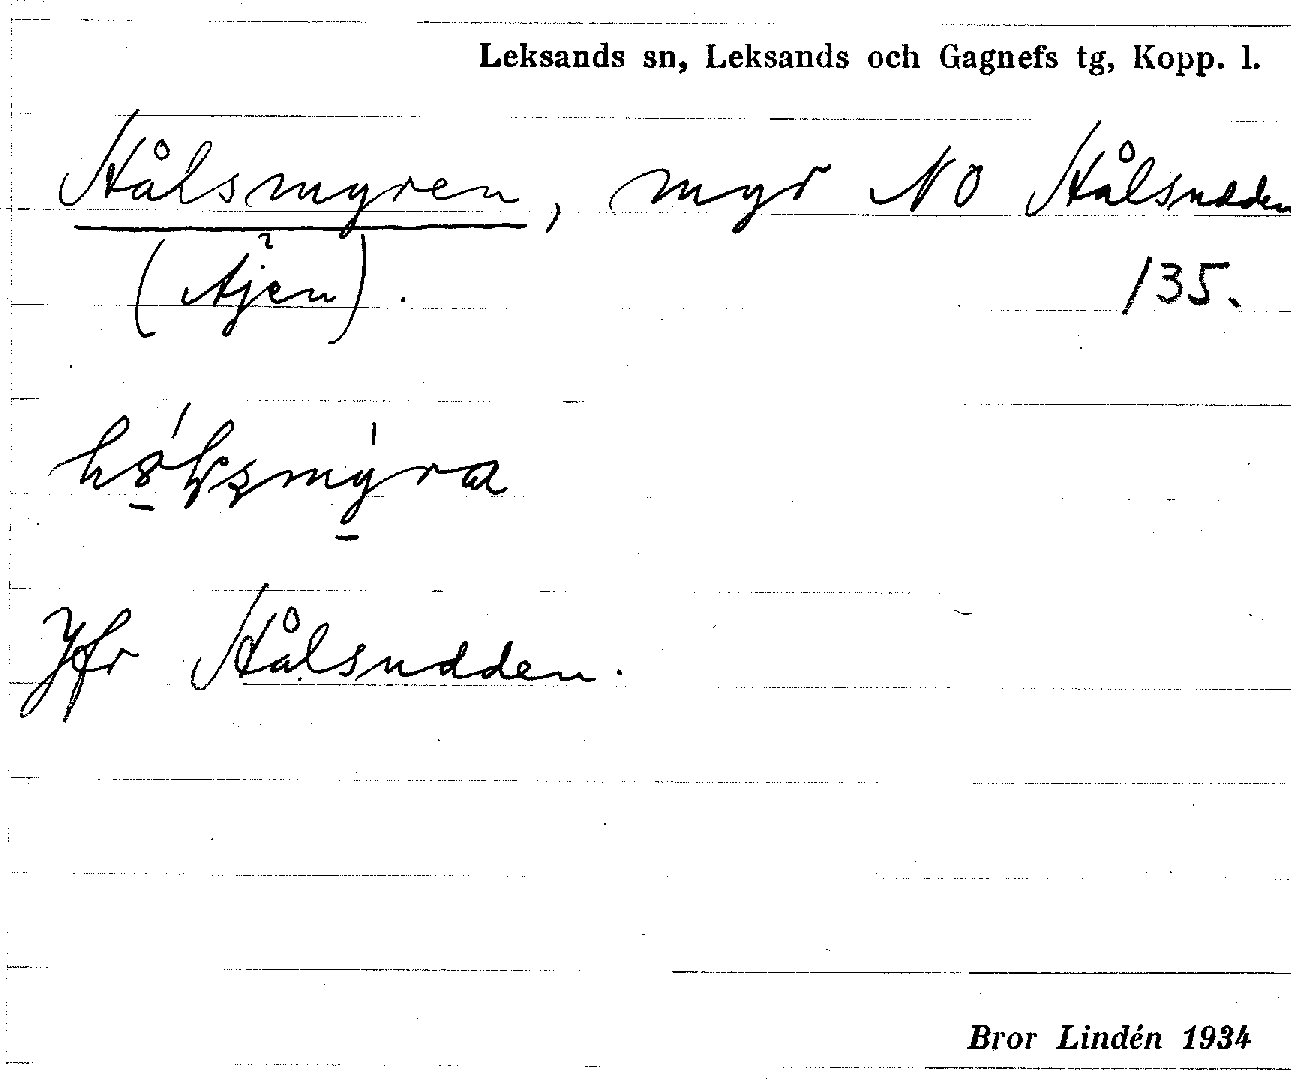 Leksands sn, Leksands och Gagnefs tg, Kopp. l.
Hålsmyren, myr NO Hålsudden
(Åjen). 135.
Jfr Hålsudden.
Bror Lindén 1934